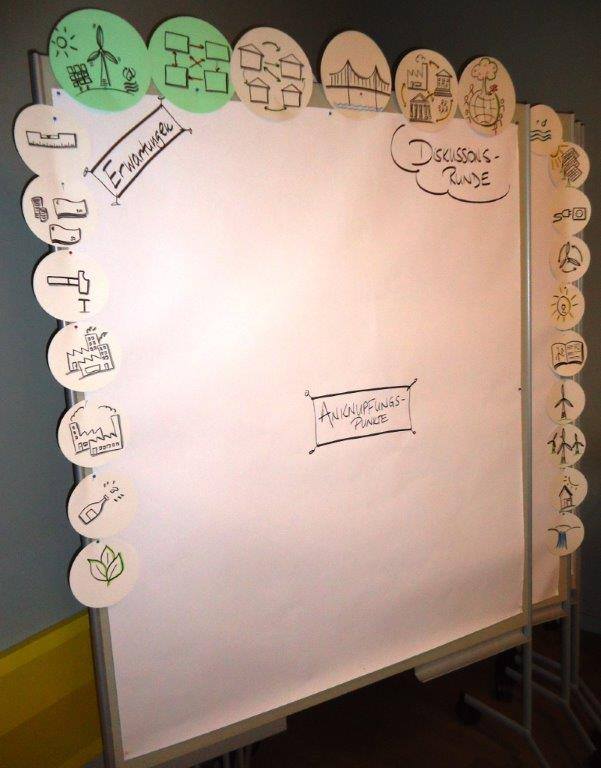 Erwartungen
DISKUSSONS-
RUNDE
ANKNÜPFUNGS-
PUNKTE